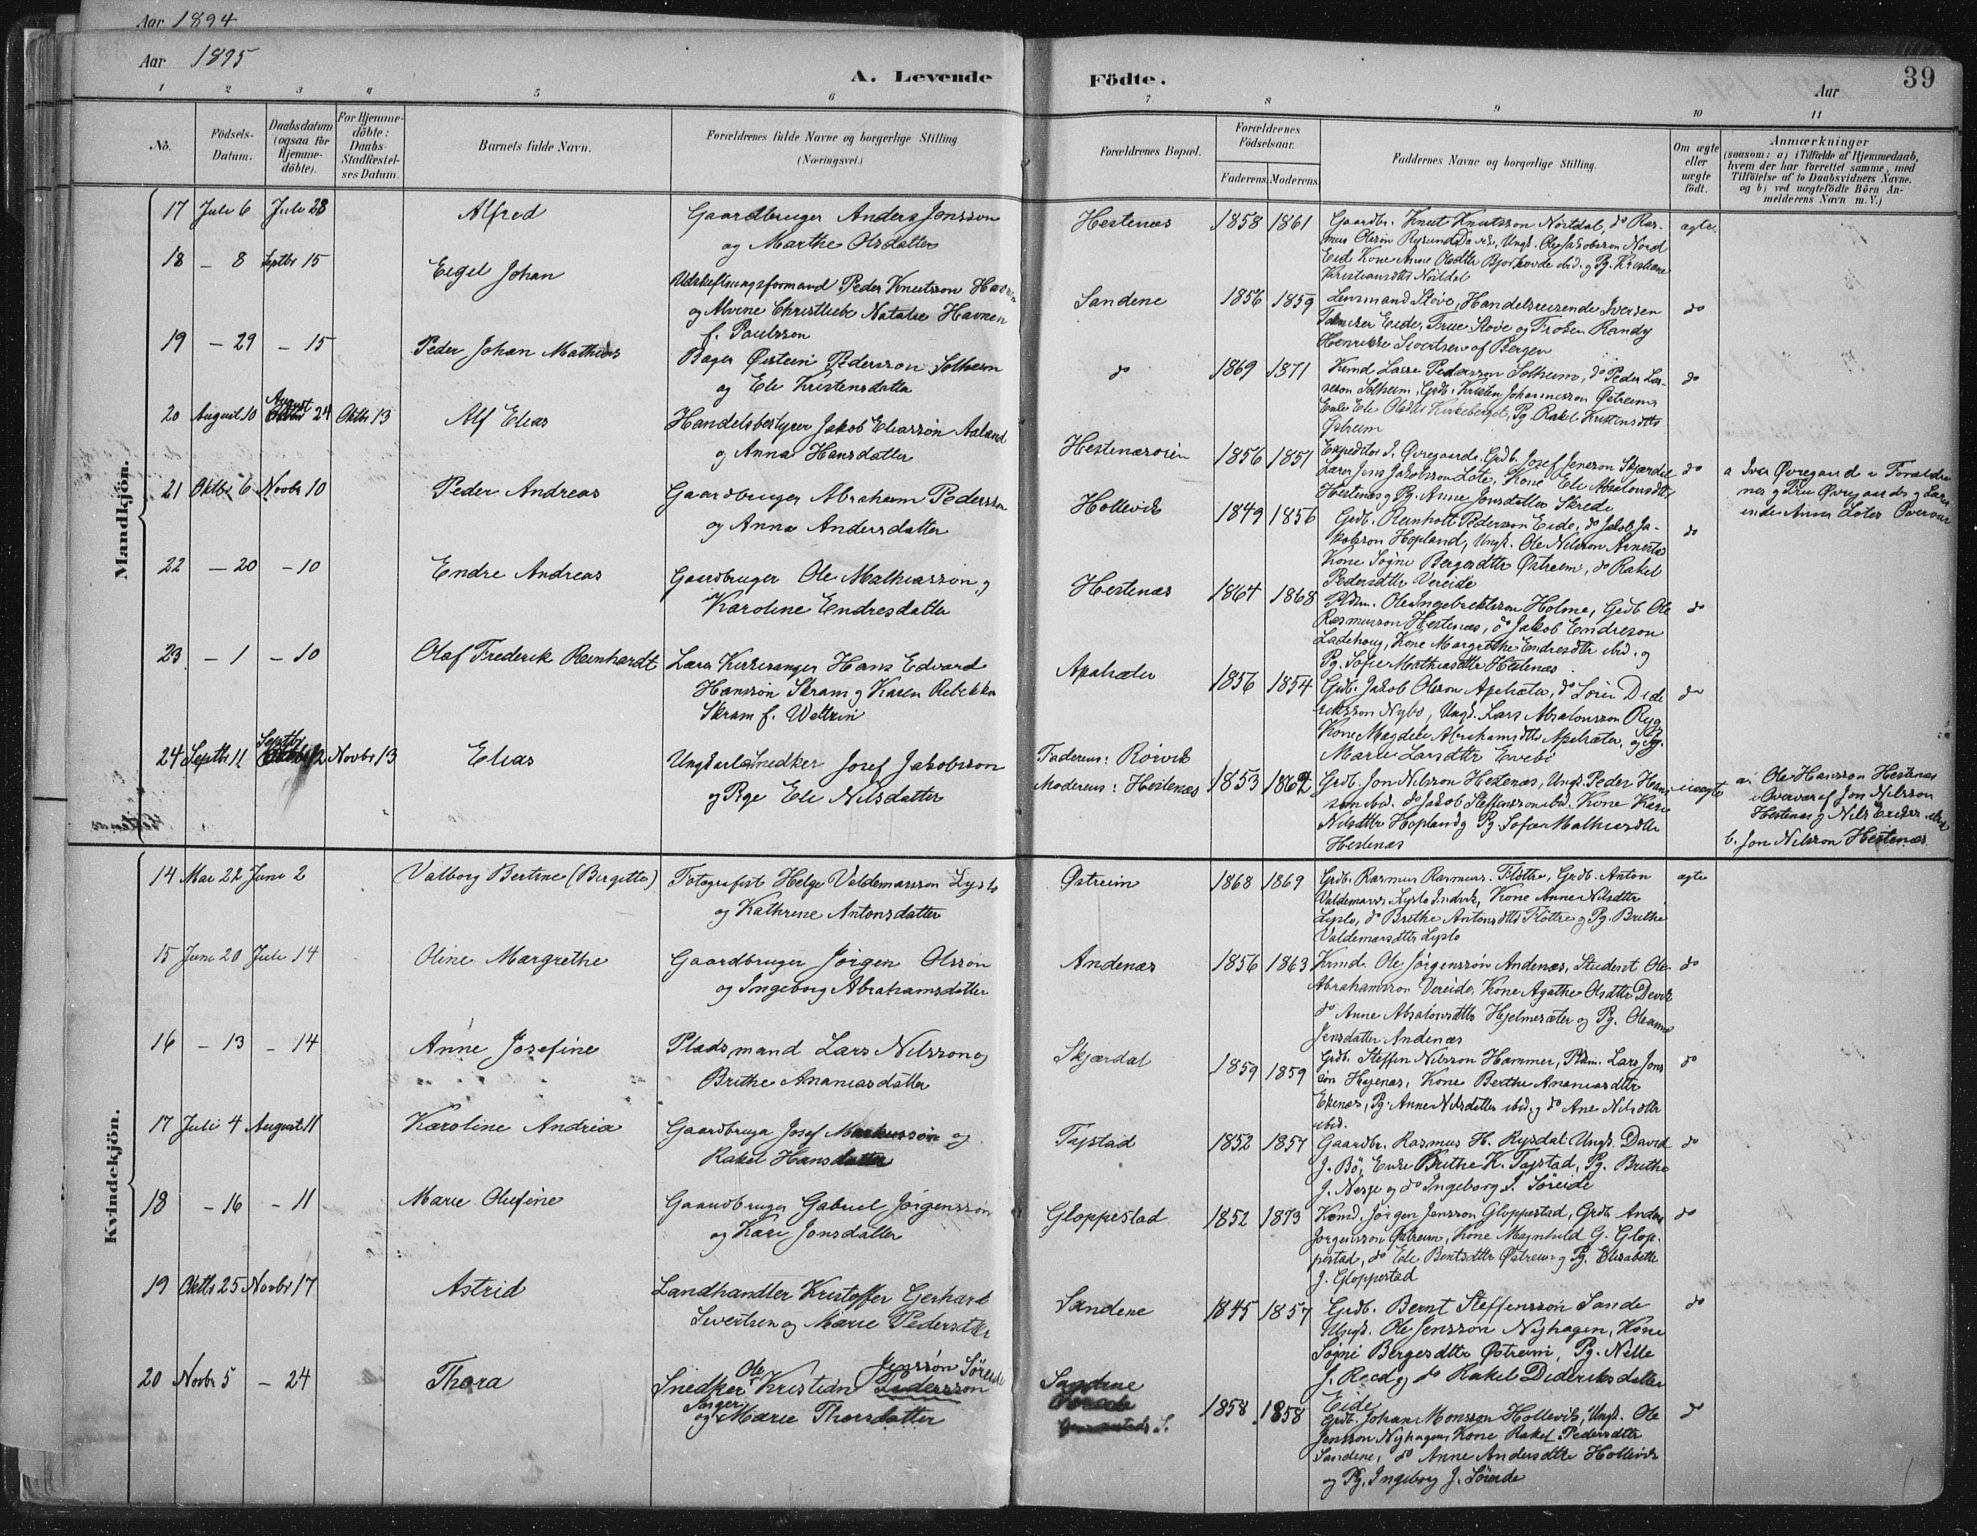 Aar 1894
Aar 1895
A. Levende Födte.
Aar
39
1 2 3 4 5 6 7 8 9 10 11
No.
Födsels-Datum.
Daabsdatum (ogsaa for Hjemmedöbte).
For Hjemmedöbte: Daabs-Stadfæstelses Datum.
Barnets fulde Navn.
Forældrenes fulde Navne og borgerlige Stilling (Næringsvei.)
Forældrenes Bopæl.
Forældrenes Födselsaar.
Faderens. Moderens.
Faddernes Navne og borgerlige Stilling.
Om ægte eller uægte födt.
Anmærkninger
(saasom: a) i Tilfælde af Hjemmedaab, hvem der har forrettet samme, med Tilföielse af to Daabsvidners Navne, og b) ved uægtefödte Börn Anmelderens Navn m. V.)
Mandkjön.
17 Juli 6 Juli 28 Alfred
Gaardbruger Anders Jonsson
og Marthe Olsdatter
Hestenæs 1858 1861
Gaardbr. Knut Knutsson Nordal, do Ras-
mus Olsson Rygsund Ungk. Ole Jakobsson Nord
Eide Kone Anne Olsdttr ibid. og Pg. Kristiane
Kristiansdtr Nordal
ægte
18 - 8 Septbr 15 Eigel Johan
Udskiftningsformand Peder Knutsson Havnen
og Alvine Christliebe Natalie Havnen
f. Paulsson
Sandene 1856 1859
Lensmand Stove, Handelsreisende Iversen
Eide, Frue Stove og Frøken Randy
Henrikke Sivertsen af Bergen
do
19 - 29 - 15 Peder Johan Mathias
Bager Østein Pedersson Solheim
og Eli Kristensdatter
do 1869 1871
Kmd Lasse Pedersson Solheim, do Peder Las-
seson Solheim, Grdb. Kristen Johannesson Østreim
Enke Eli Olsdtr Kirkeberget, Pg. Rakel Kristensdtr
Østreim
do
20 August 10 August 24 Oktbr 13 Alf Elias
Handelsbestyrer Jakob Eliassøn Aaland
og Anna Hansdatter
Hestenæsøien 1856 1851
Expeditør I. Øvregaard, Grdb. Josef Jensson Skjærdal
Lærer Jens Jakobsson Lote, Kone Eli Absalonsdtr
Hestenæs og Pg. Anne Jonsdatter Skrede
do
a Iver Øvregaard i Forældre
nes og Frue Øvregaards og Lærer
inde Anna Lotes Overvær
21 Oktbr 6 Novbr 10 Peder Andreas
Gaardbruger Abraham Pedersson
og Anna Andersdatter
Hollevik 1849 1856
Grdb. Reinholt Pedersson Eide, do Jakob Ja-
kobson Hopland, Ungk. Ole Nilsson Arnestad
Kone Søgni Bergesdttr Østreim, do Rakel
Pedersdttr Vereide
do
22 - 20 - 10 Endre Andreas
Gaardbruger Ole Mathiassøn og
Karoline Endresdatter
Hestenæs 1864 1868
Pldsm. Ole Ingebriktsson Holme, Grdb Ole
Rasmusson Hestenæs, do Jakob Endreson
Ladehoug, Kone Margrethe Endresdtr ibid. og
Pg. Sofie Mathiasdttr Hestenæs
do
23 - 1 - 10 Olaf Frederik Reinhardt
Lærer Kirkesanger Hans Edvard
Hanssøn Skram og Karen Rebekka
Skram f. Weltzin
Apalsæter 1856 1854
Grdb. Jakob Olsson Apelsæter, do Sören Dide
riksson Nybø, Ungk. Lars Absalonsson Ryg
Kone Magdeli Abrahamsdttr Apelsæter, og Pg.
Marie Larsdttr Evebø
do
24 Septbr 11 Septbr 12 Novbr 13 Elias
Ungkarl Snedker Josef Jakobsson
og Pge Eli Nilsdatter
Faderens: Røivik
Moderens: Hestenæs 1853 1864
Grdb. Jon Nilsson Hestenæs, Ungk. Peder Hans
son ibid. do Jakob Steffensson ibid. Kone Kari
Nilsdttr Hopland og Pg Sofie Mathiasdttr
Hestenæs
uægte
a. Ole Hansson Hestenæs
i Overvær af Jon Nilsson
Hestenæs og Nils ibid
b. Jon Nilsson Hestenæs
Kvindekjön.
14 Mai 22 Juni 2 Valborg Bertine (Birgitte)
Fotografist Helge Valdemarsson Lyslo
og Kathrine Antonsdatter
Østreim 1868 1869
Grdb. Rasmus Rasmuss. Fløtre, Grdb. Anton
Valdemarss Lyslo Indvik, Kone Anne Nilsdttr
Lyslo, do Brithe Antonsdttr Fløtre og Pg. Brithe
Valdemarsdttr Lyslo
ægte
15 Juni 20 Juli 14 Oline Margrethe
Gaardbruger Jørgen Olssøn
og Ingeborg Abrahamsdatter
Andenæs 1856 1863
Kmd. Ole Jørgenssøn Andenæs, Student Ole
Abrahamsson Vereide, Kone Agathe Olsdttr Devik
do Anne Absalonsdttr Hjelmesæter og Pg. Oleanne
Jensdatter Andenæs
do
16 - 13 - 14 Anne Josefine
Pladsmand Lars Nilsson og
Brithe Ananiasdatter
Skjærdal 1859 1859
Grdb. Steffen Nilsson Hammer, Pldm. Lars Jons
son Hagenæs, Kone Berthe Ananiasdttr
Ekenæs, Pg. Anne Nilsdatter ibid. og do Ane Nilsdttr
ibid.
do
17 Juli 4 August 11 Karoline Andrea
Gaardbruger Josef Markussøn og
Rakel Hansdatter
Tystad 1852 1857
Gaardbr. Rasmus H. Rysdal. Ungk. David
J. Bö, Enke Brithe K. Tystad, Pg. Brithe
J. Nesje og do Ingeborg J. Søreide
do
18 - 16 - 11 Marie Olufine
Gaardbruger Gabriel Jörgenssön
og Kari Jonsdatter
Gloppestad 1852 1873
Kmd. Jørgen Jensson Gloppestad, Grdb. Anders
Jørgensson Østreim, Kone Magnhild G. Glop-
pestad, do Eli Bentsdttr Østreim og Pg. Elisabeth
J. Gloppestad
do
19 Oktbr 25 Novbr 17 Astrid
Landhandler Kristoffer Gerhard
Sivertsen og Marie Pedersdtr
Sandene 1845 1857
Grdb. Bernt Steffenssön Sande
Ungk. Ole Jenssøn Nyhagen, Kone
Søgni Bergesdttr Østreim, Pg. Nelle
J. Roed og do Rakel Dideriksdatter
Eide
do
20 Novbr 5 - 24 Thora
Ole Jenssøn Søreide
Snedker Kristian Pederssøn
og Marie Thorsdatter
Sandene 1858 1858
Grdb. Johan Monsson Hollevik, Ungk. Ole
Jensson Nyhagen, Kone Rakel Pedersdttr
Sandene, do Anne Andersdttr Hollevik
og Pg. Ingeborg J. Søreide
do